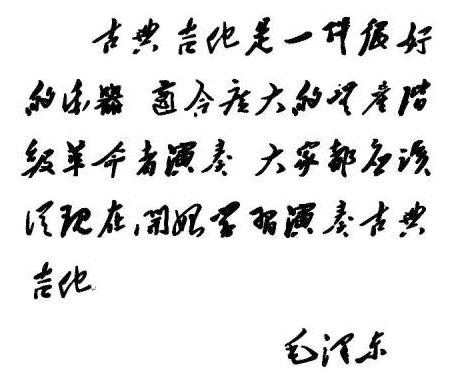 古典吉他是一件很好
的乐器 适合广大的无产阶
级革命者演奏 大家都应该
从现在开始学习演奏古典
吉他
毛泽东